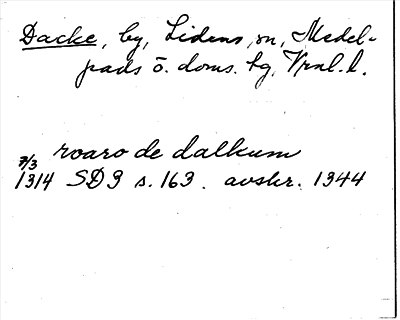 Dacke, by, Lidens sn, Medel-
pads ö. doms. hg, Vrnl. l.
roaro de dalkum
7/3
1314 SD 3 s. 163. avskr. 1344